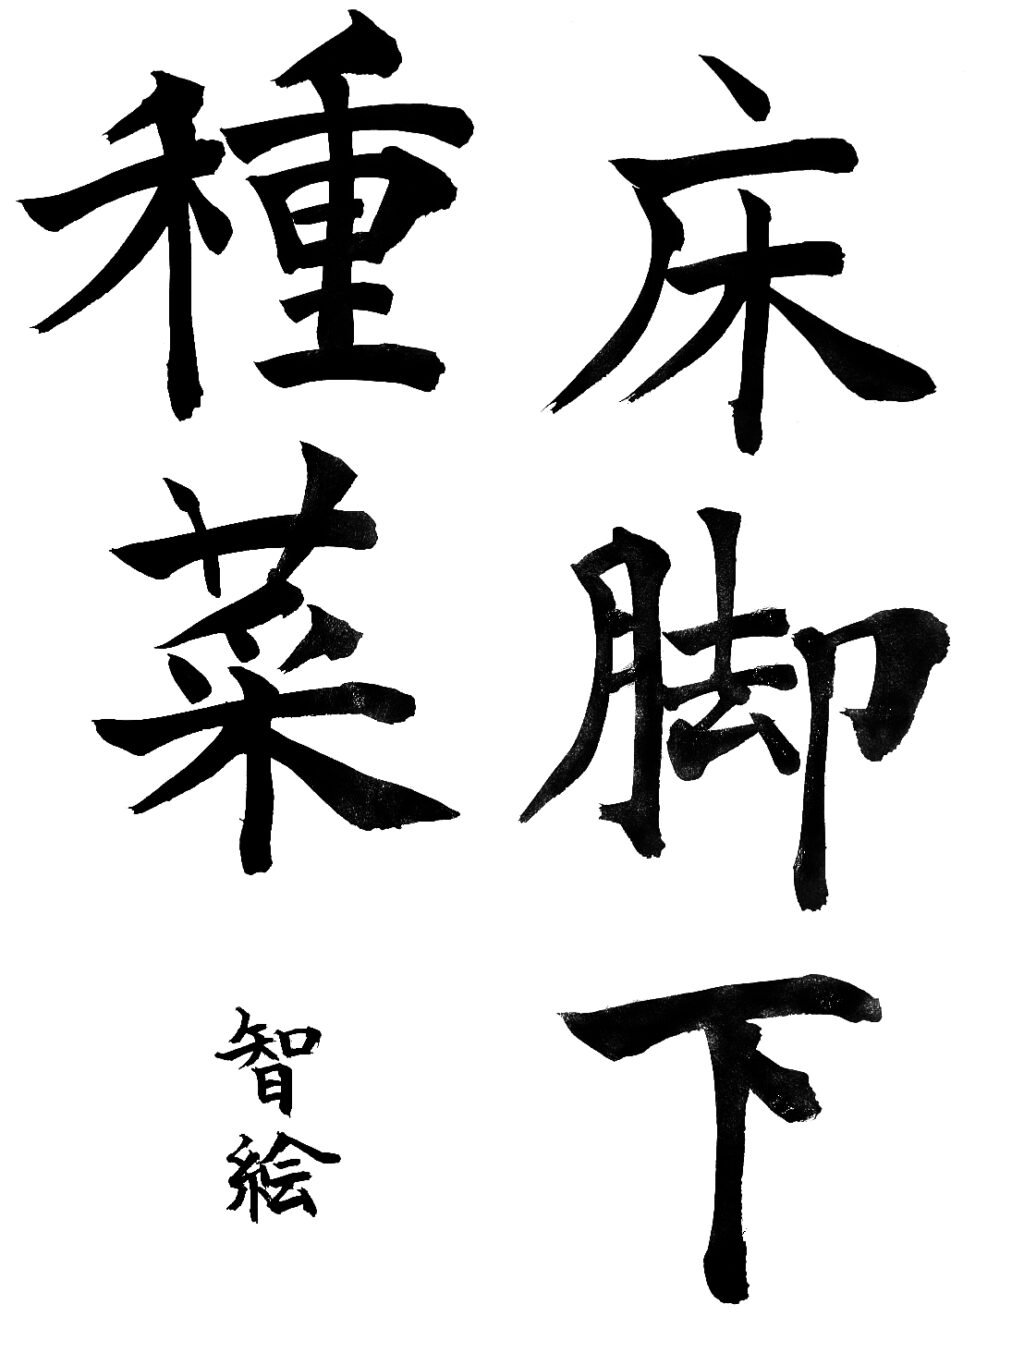 床脚下
種菜
智絵